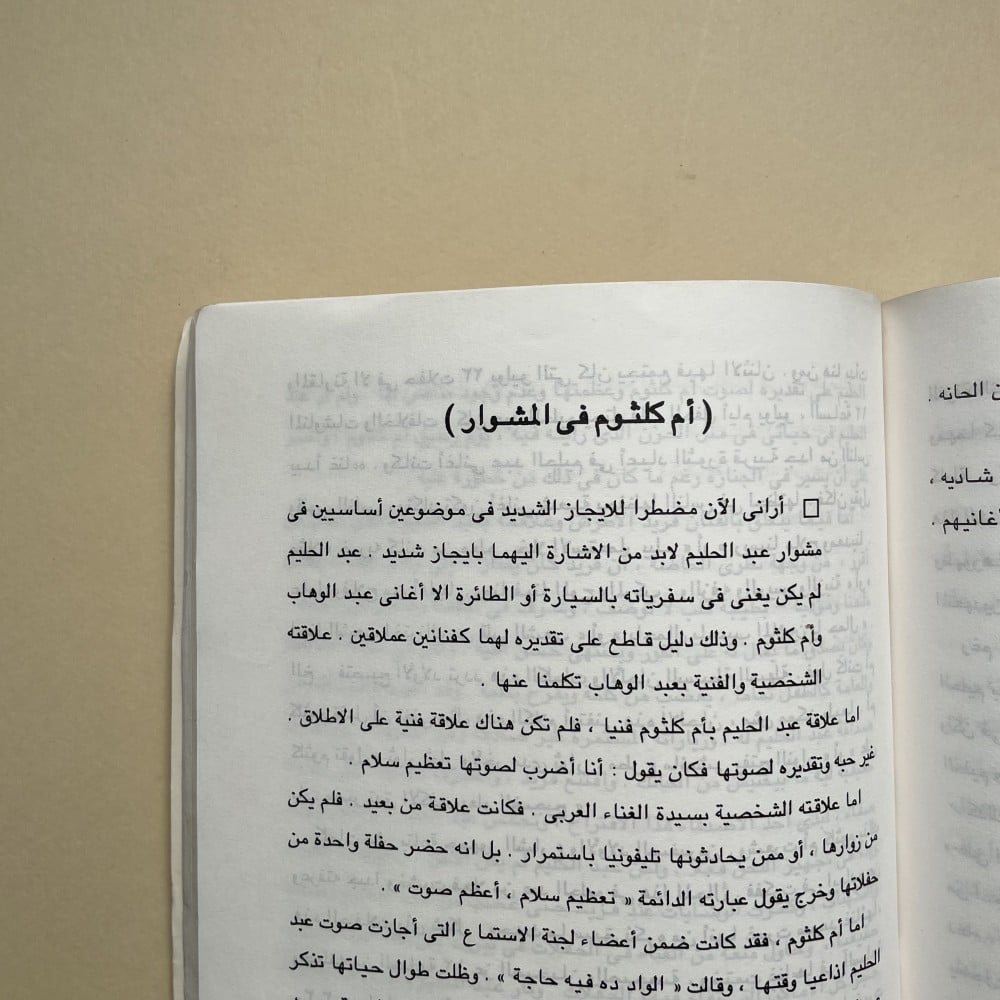 ( أم كلثوم فى المشوار )
□ أرانى الآن مضطرا للايجاز الشديد فى موضوعين أساسيين فى
مشوار عبد الحليم لابد من الاشارة اليهما بايجاز شديد . عبد الحليم
لم يكن يغنى فى سفرياته بالسيارة أو الطائرة الا أغانى عبد الوهاب
وأم كلثوم . وذلك دليل قاطع على تقديره لهما كفنانين عملاقين . علاقته
الشخصية والفنية بعبد الوهاب تكلمنا عنها .
اما علاقة عبد الحليم بأم كلثوم فنيا ، فلم تكن هناك علاقة فنية على الاطلاق .
غير حبه وتقديره لصوتها فكان يقول : أنا أضرب لصوتها تعظيم سلام .
اما علاقته الشخصية بسيدة الغناء العربى . فكانت علاقة من بعيد . فلم يكن
من زوارها ، أو ممن يحادثونها تليفونيا باستمرار . بل انه حضر حفلة واحدة من
حفلاتها وخرج يقول عبارته الدائمة « تعظيم سلام ، أعظم صوت » .
اما أم كلثوم ، فقد كانت ضمن أعضاء لجنة الاستماع التى أجازت صوت عبد
الحليم اذاعيا وقتها ، وقالت « الواد ده فيه حاجة » . وظلت طوال حياتها تذكر
ن الحانه .
شاديه ،
أغانيهم .